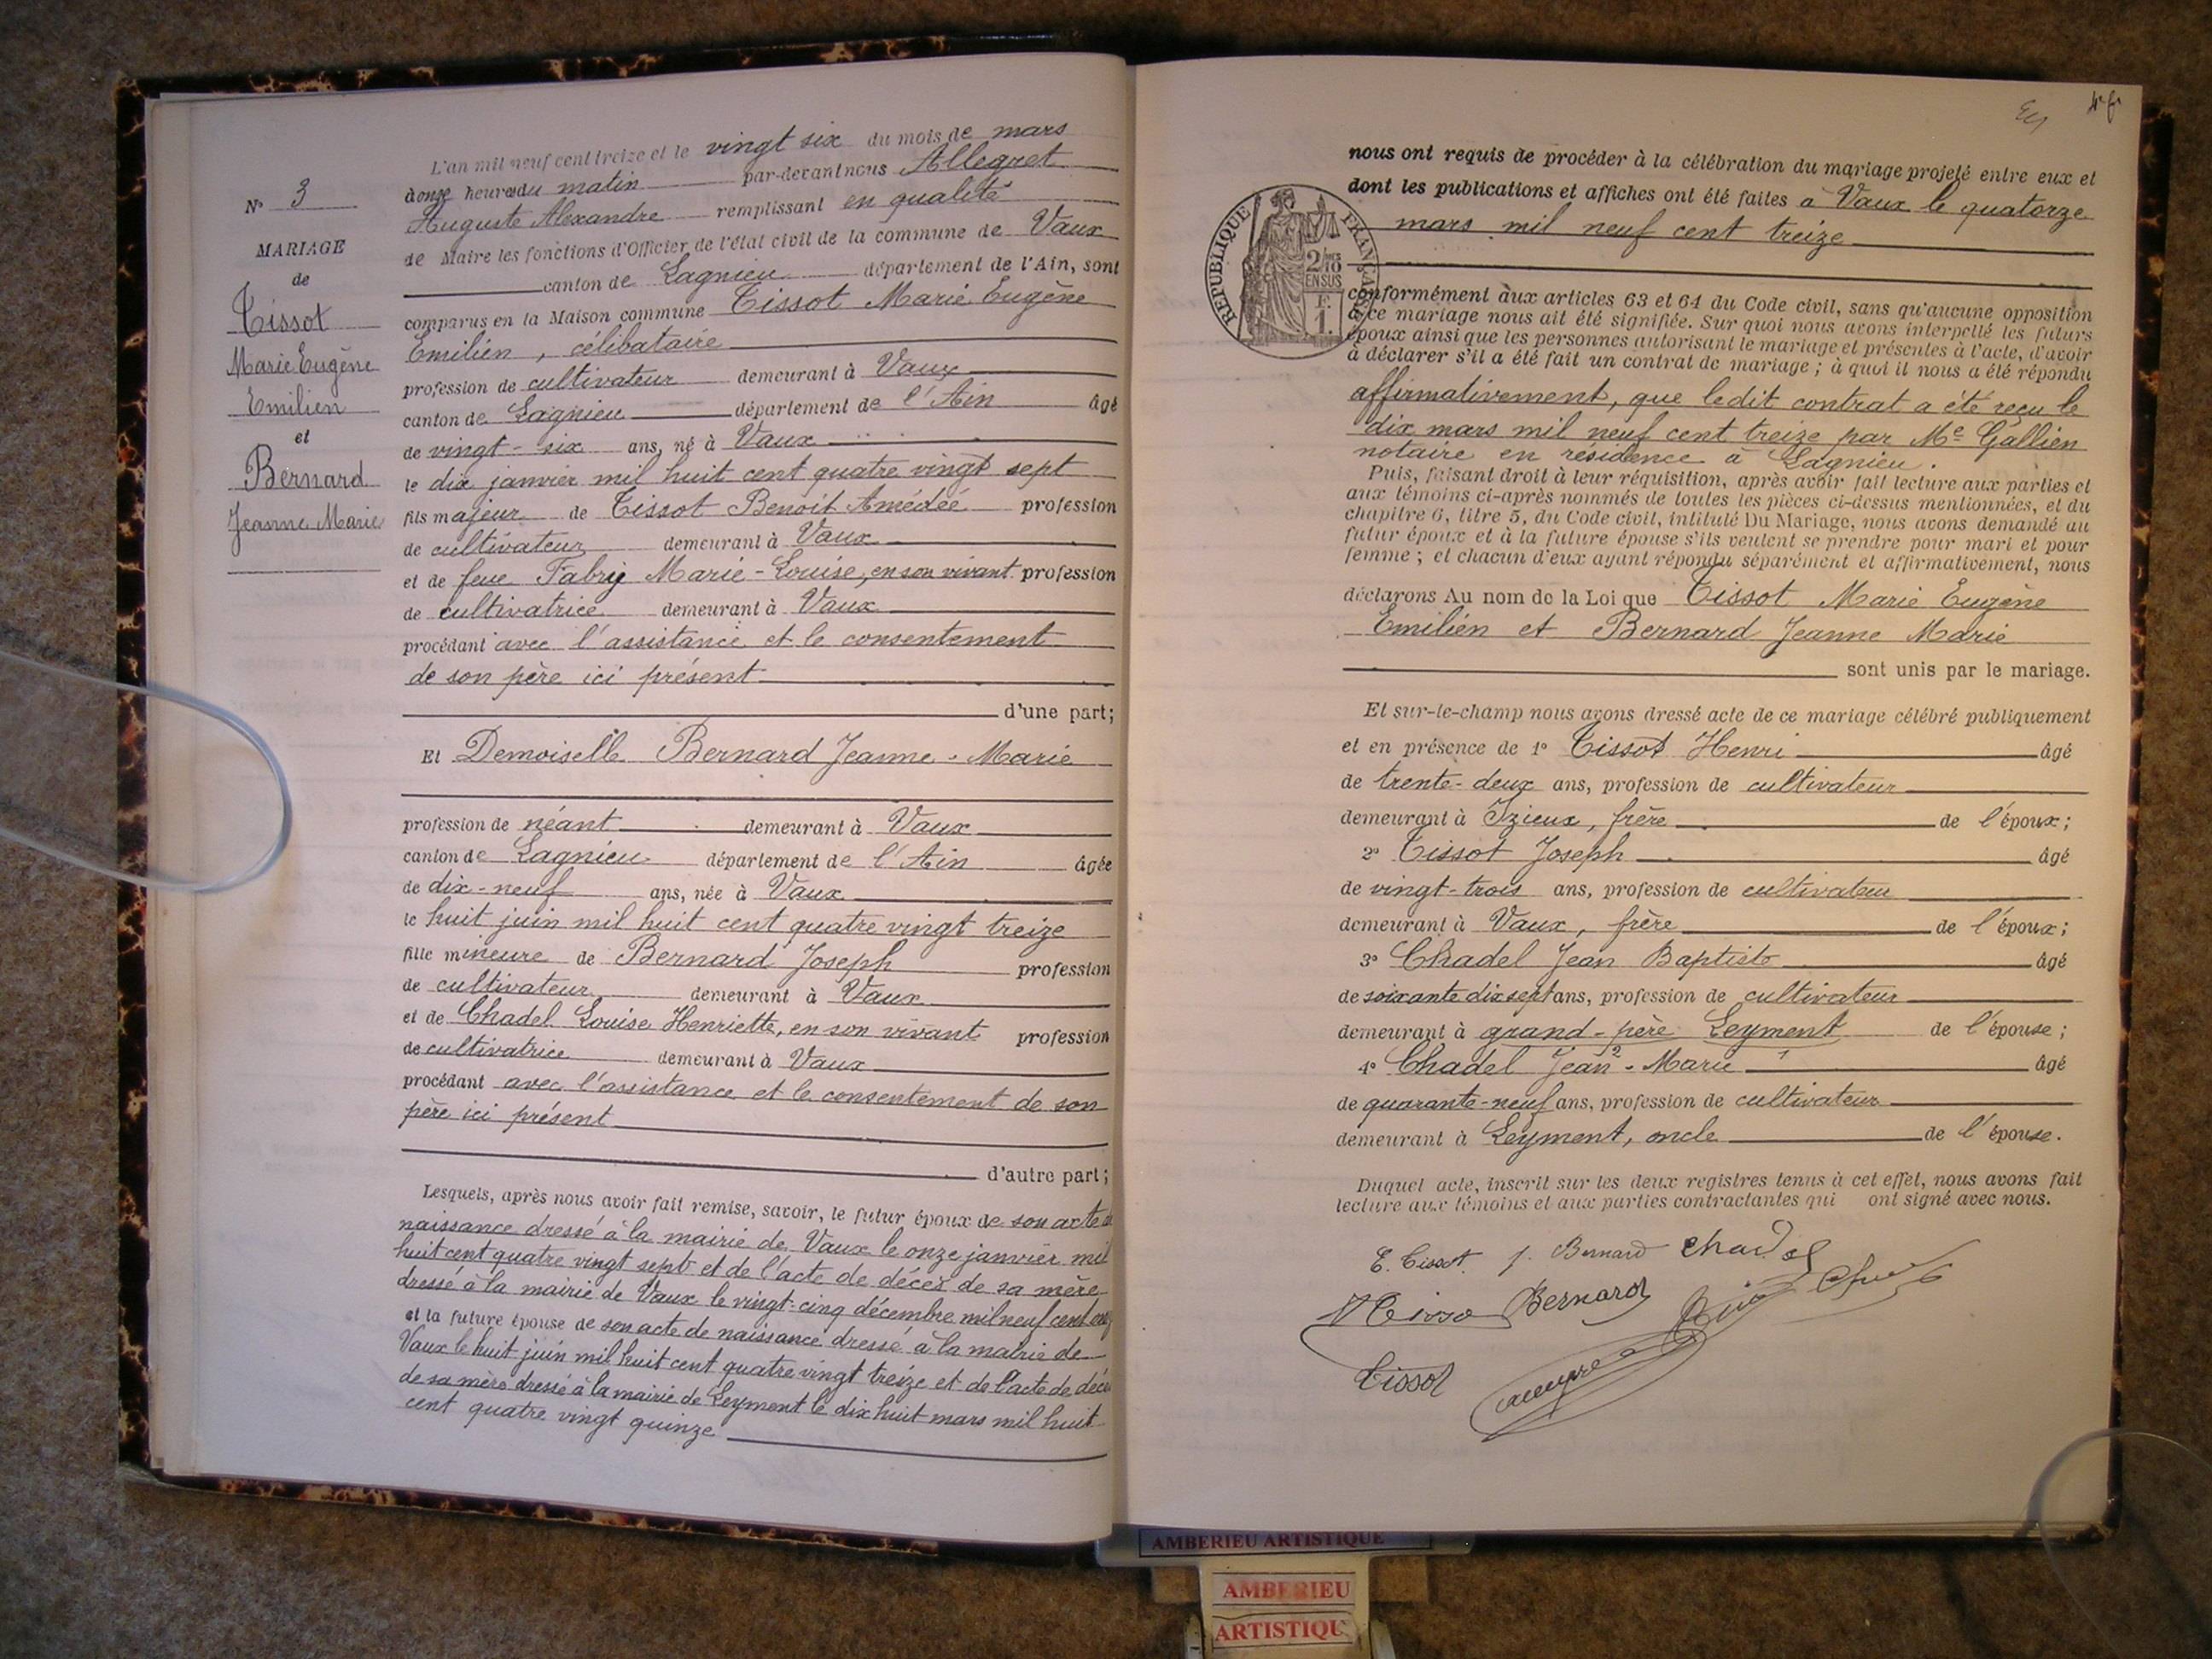 L'an mil neuf cent treize et le vingt six du mois de mars
à onze heures du matin par-devant nous Allegret
Auguste Alexandre remplissant en qualité
de Maire les fonctions d'Officier de l'état civil de la commune de Vaux
canton de Lagnieu département de l'Ain, sont
comparus en la Maison commune Tissot Marie Eugène
Emilien, célibataire
profession de cultivateur demeurant à Vaux
canton de Lagnieu département de l'Ain âgé
de vingt-six ans, né à Vaux
le dix janvier mil huit cent quatre vingt sept
fils majeur de Tissot Benoit Amédée profession
de cultivateur demeurant à Vaux
et de feue Fabry Marie-Louise, en son vivant profession
de cultivatrice demeurant à Vaux
procédant avec l'assistance et le consentement
de son père ici présent
d'une part;
Et Demoiselle Bernard Jeanne-Marie
profession de néant demeurant à Vaux
canton de Lagnieu département de l'Ain âgée
de dix-neuf ans, née à Vaux
le huit juin mil huit cent quatre vingt treize
fille mineure de Bernard Joseph profession
de cultivateur demeurant à Vaux
et de Chadel Louise Henriette, en son vivant profession
de cultivatrice demeurant à Vaux
procédant avec l'assistance et le consentement de son
père ici présent
d'autre part;
Lesquels, après nous avoir fait remise, savoir, le futur époux de son acte de
naissance dressé à la mairie de Vaux le onze janvier mil
huit cent quatre vingt sept et de l'acte de décès de sa mère
dressé à la mairie de Vaux le vingt-cinq décembre mil neuf cent
et la future épouse de son acte de naissance dressé à la mairie de
Vaux le huit juin mil huit cent quatre vingt treize et de l'acte de décès
de sa mère dressé à la mairie de Leyment le dix huit mars mil huit
cent quatre vingt quinze
N° 3
MARIAGE
de
Tissot
Marie Eugène
Emilien
et
Bernard
Jeanne Marie
nous ont requis de procéder à la célébration du mariage projeté entre eux et
dont les publications et affiches ont été faites à Vaux le quatorze
mars mil neuf cent treize
REPUBLIQUE FRANÇAISE
2/10
EN SUS
1 F.
conformément aux articles 63 et 64 du Code civil, sans qu'aucune opposition
à ce mariage nous ait été signifiée. Sur quoi nous avons interpellé les futurs
époux ainsi que les personnes autorisant le mariage et présentes à l'acte, d'avoir
à déclarer s'il a été fait un contrat de mariage; à quoi il nous a été répondu
affirmativement, que ledit contrat a été reçu le
dix mars mil neuf cent treize par Me Gallien
notaire en résidence à Lagnieu.
Puis, faisant droit à leur réquisition, après avoir fait lecture aux parties et
aux témoins ci-après nommés de toutes les pièces ci-dessus mentionnées, et du
chapitre 6, titre 5, du Code civil, intitulé Du Mariage, nous avons demandé au
futur époux et à la future épouse s'ils veulent se prendre pour mari et pour
femme; et chacun d'eux ayant répondu séparément et affirmativement, nous
déclarons Au nom de la Loi que Tissot Marie Eugène
Emilien et Bernard Jeanne Marie
sont unis par le mariage.
Et sur-le-champ nous avons dressé acte de ce mariage célébré publiquement
et en présence de 1° Tissot Henri âgé
de trente-deux ans, profession de cultivateur
demeurant à Izieux, frère de l'époux;
2° Tissot Joseph âgé
de vingt-trois ans, profession de cultivateur
demeurant à Vaux, frère de l'époux;
3° Chadel Jean Baptiste âgé
de soixante dix sept ans, profession de cultivateur
demeurant à grand-père Leyment de l'épouse;
2 1
4° Chadel Jean-Marie âgé
de quarante-neuf ans, profession de cultivateur
demeurant à Leyment, oncle de l'épouse.
Duquel acte, inscrit sur les deux registres tenus à cet effet, nous avons fait
lecture aux témoins et aux parties contractantes qui ont signé avec nous.
E. Tissot J. Bernard Chadel
Bernard
Tissot
AMBERIEU ARTISTIQUE
AMBERIEU
ARTISTIQU